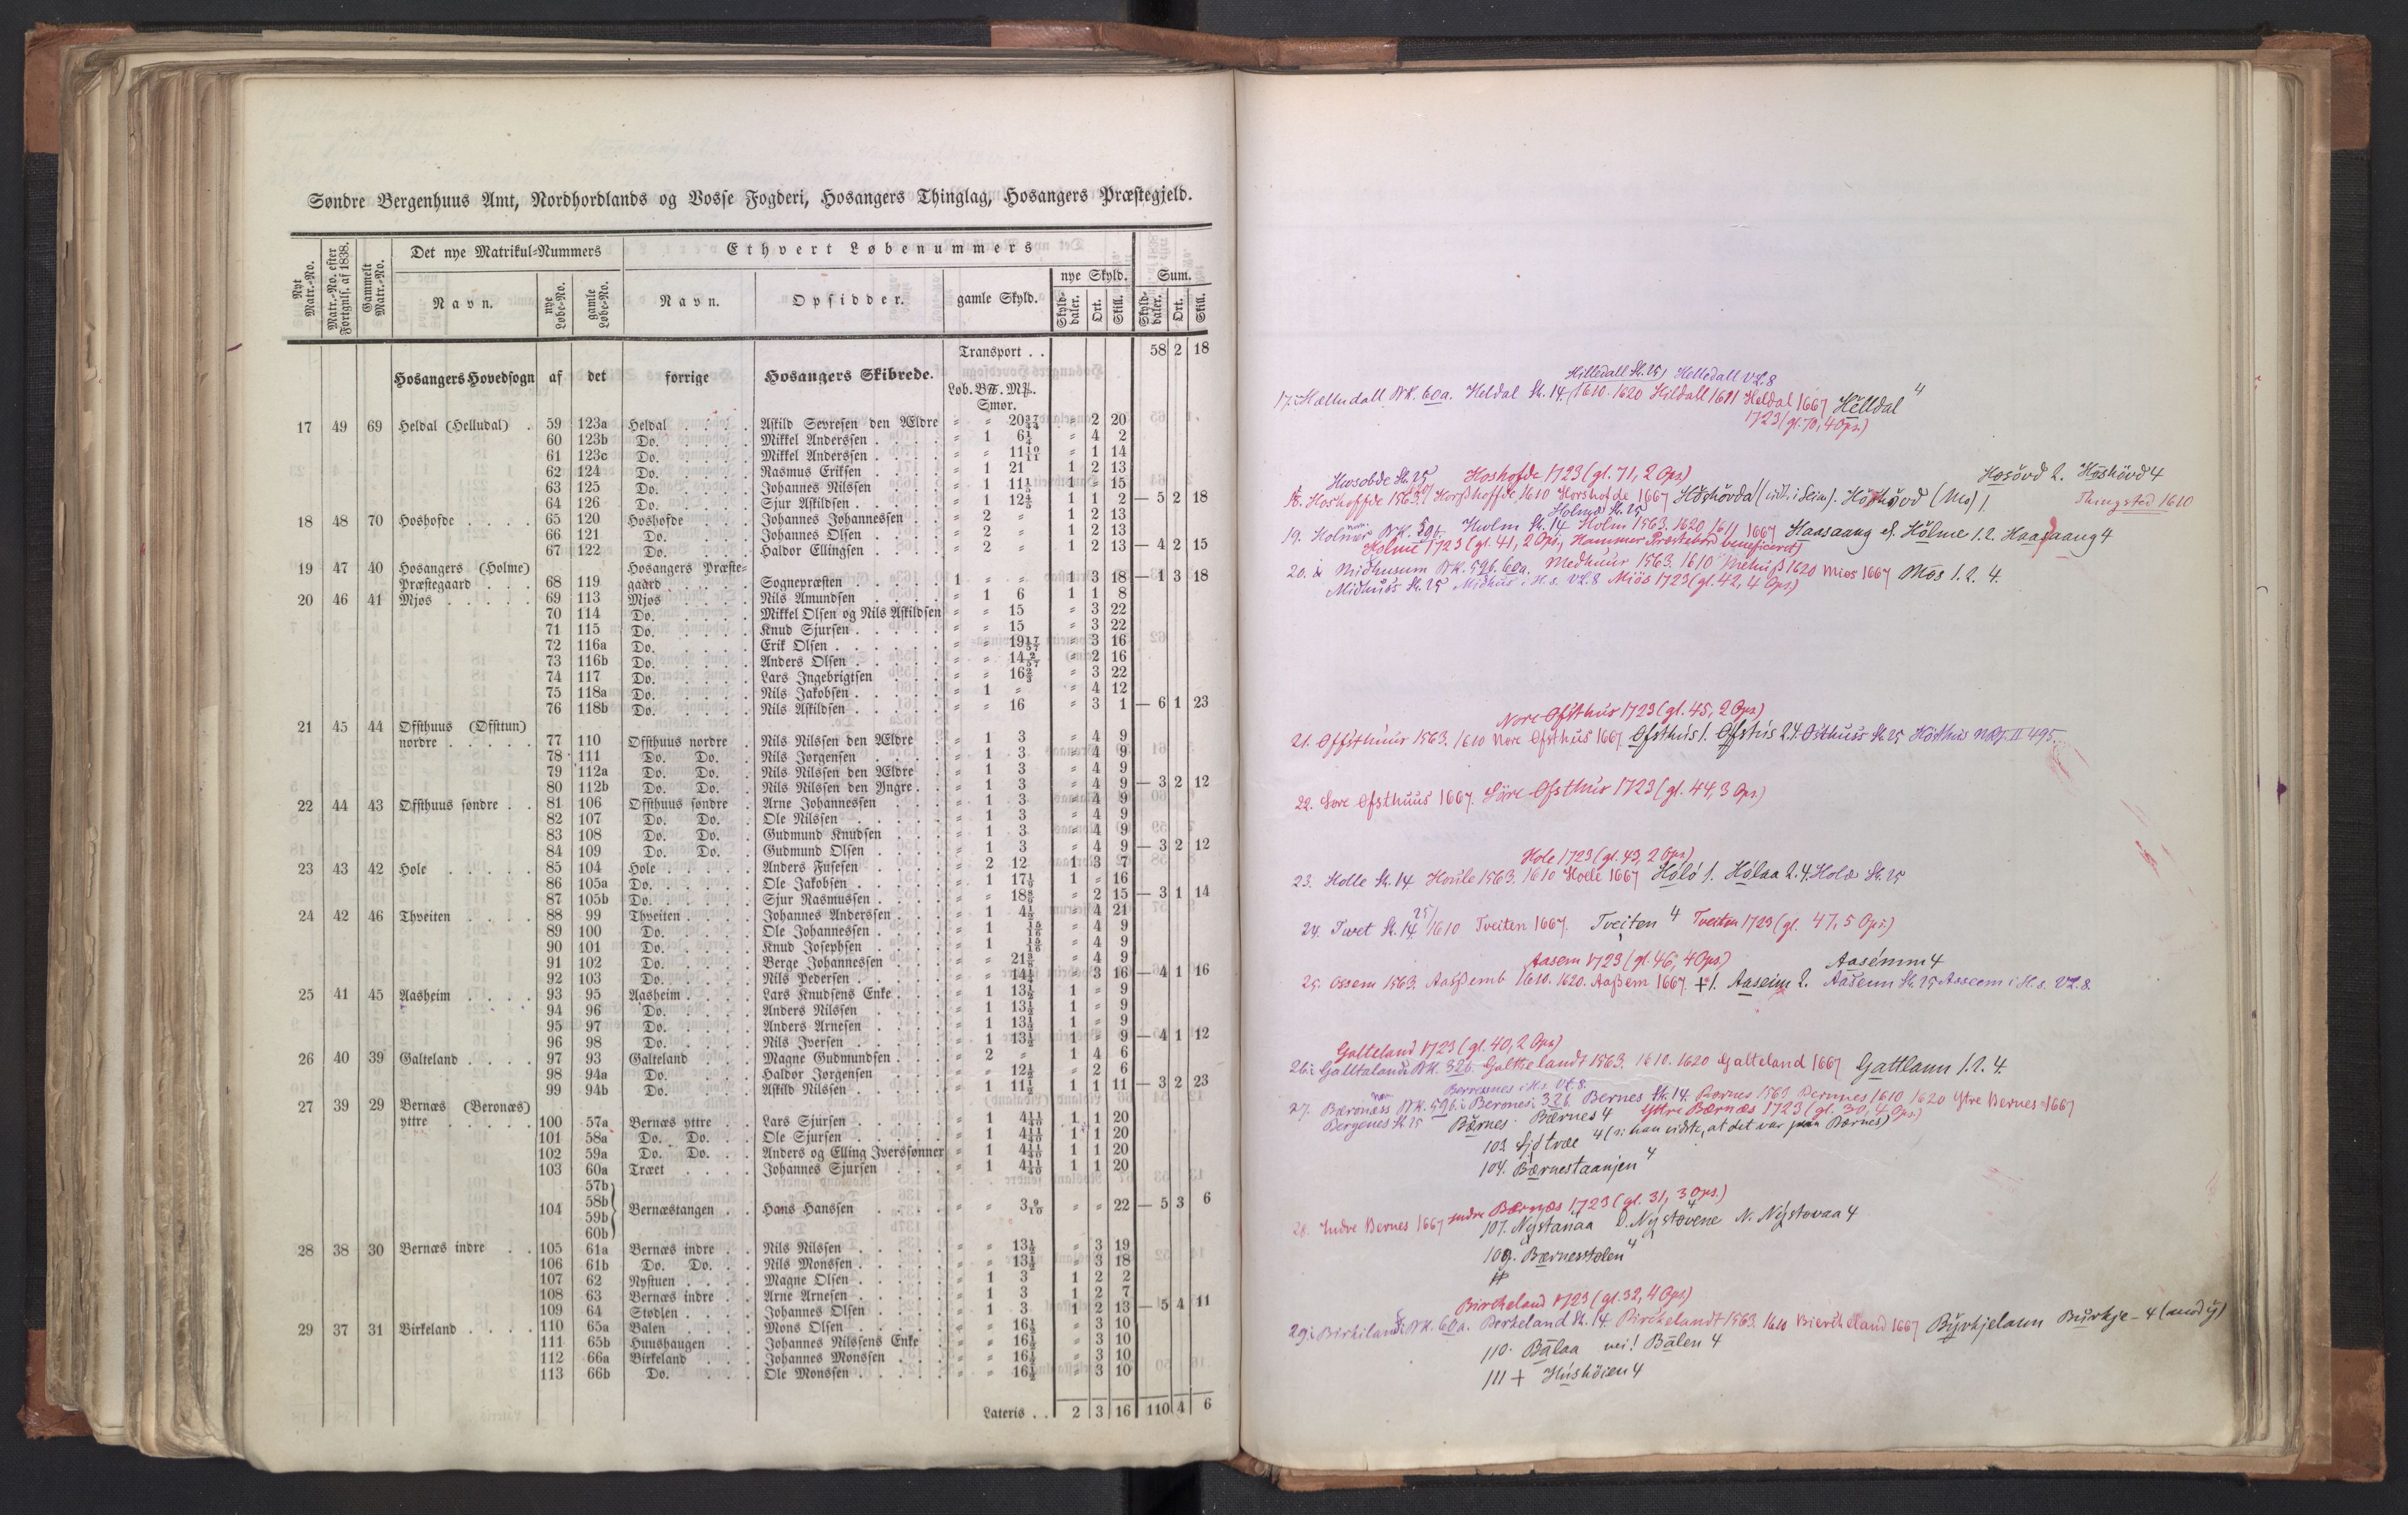 Søndre Bergenhuus Amt, Nordhordlands og Vosse Fogderi, Hosangers Thinglag, Hosangers Præstegjeld.
Nyt Matr.-No. | Matr.-No. efter Fortgnls. af 1838. | Gammelt Matr.-No. | Det nye Matrikul-Nummers | Ethvert Løbenummers
Navn. | nye Løbe-No. | gamle Løbe-No. | Navn. | Opsidder. | gamle Skyld. | nye Skyld. | Sum.
Skylddaler. | Ort. | Skill. | Skylddaler. | Ort. | Skill.
Transport . . 58 2 18
Hosangers Hovedsogn af det forrige Hosangers Skibrede. Løb. B℔. M℔.
Smør.
17 49 69 Heldal (Helludal) . 59 123a Heldal . . . . Askild Sevresen den Ældre = = 20 37/44 = 2 20
60 123b Do. . . . . Mikkel Anderssen . . . . = 1 6 1/4 = 4 2
61 123c Do. . . . . Mikkel Anderssen . . . . = = 11 10/11 = 1 14
62 124 Do. . . . . Rasmus Eriksen . . . . = 1 21 1 2 13
63 125 Do. . . . . Johannes Nilssen . . . . = 1 11 1/5 1 = 15
64 126 Do. . . . . Sjur Askildsen . . . . = 1 12 4/5 1 1 2 — 5 2 18
18 48 70 Hoshofde . . . . 65 120 Hoshofde . . . Johannes Johannessen . . = 2 = 1 2 13
66 121 Do. . . . . Johannes Olsen . . . . = 2 = 1 2 13
67 122 Do. . . . . Haldor Ellingsen . . . . = 2 = 1 2 13 — 4 2 15
19 47 40 Hosangers (Holme) Hosangers Præste-
Præstegaard . . . 68 119 gaard . . . . Sognepræsten . . . . 1 = = 1 3 18 — 1 3 18
20 46 41 Mjøs . . . . . 69 113 Mjøs . . . . Nils Amundsen . . . . = 1 6 1 1 8
70 114 Do. . . . . Mikkel Olsen og Nils Askildsen = = 15 = 3 22
71 115 Do. . . . . Knud Sjursen . . . . . = = 15 = 3 22
72 116a Do. . . . . Erik Olsen . . . . . . = = 19 17/57 = 3 16
73 116b Do. . . . . Anders Olsen . . . . . = = 14 2/57 = 2 16
74 117 Do. . . . . Lars Ingebrigtsen . . . = = 16 2/3 = 3 22
75 118a Do. . . . . Nils Jakobsen . . . . . = 1 = = 4 12
76 118b Do. . . . . Nils Askildsen . . . . . = = 16 = 3 1 — 6 1 23
21 45 44 Offthuus (Øfsttun)
nordre . . . . . 77 110 Offthuus nordre . Nils Nilssen den Ældre . = 1 3 = 4 9
78 111 Do. Do. . Nils Jørgensen . . . . = 1 3 = 4 9
79 112a Do. Do. . Nils Nilssen den Ældre . = 1 3 = 4 9
80 112b Do. Do. . Nils Nilssen den Yngre . . = 1 3 = 4 9 — 3 2 12
22 44 43 Offthuus søndre . . 81 106 Offthuus søndre . Arne Johannessen . . . = 1 3 = 4 9
82 107 Do. Do. . Ole Nilssen . . . . . = 1 3 = 4 9
83 108 Do. Do. . Gudmund Knudsen . . . = 1 3 = 4 9
84 109 Do. Do. . Gudmund Olsen . . . . = 1 3 = 4 9 — 3 2 12
23 43 42 Hole . . . . . 85 104 Hole . . . . . Anders Fusesen . . . . = 2 12 1 3 7
86 105a Do. . . . . Ole Jakobsen . . . . . = 1 17 1/9 1 = 16
87 105b Do. . . . . Sjur Rasmussen . . . . = = 18 8/9 = 2 15 — 3 1 14
24 42 46 Thveiten . . . . 88 99 Thveiten . . . . Johannes Anderssen . . . = 1 4 1/2 = 4 21
89 100 Do. . . . . Ole Johannessen . . . . = 1 15/16 = 4 9
90 101 Do. . . . . Knud Josephsen . . . . = 1 15/16 = 4 9
91 102 Do. . . . . Berge Johannessen . . . = = 21 3/8 = 4 9
92 103 Do. . . . . Nils Pedersen . . . . . = = 14 1/4 = 3 16 — 4 1 16
25 41 45 Aasheim . . . . 93 95 Aasheim . . . . Lars Knudsens Enke . . . = 1 13 1/2 1 = 9
94 96 Do. . . . . Anders Nilssen . . . . = 1 13 1/2 1 = 9
95 97 Do. . . . . Anders Arnesen . . . . = 1 13 1/2 1 = 9
96 98 Do. . . . . Nils Iversen . . . . . = 1 13 1/2 1 = 9 — 4 1 12
26 40 39 Galteland . . . . 97 93 Galteland . . . Magne Gudmundsen . . . = 2 = 1 4 6
98 94a Do. . . . Haldor Jørgensen . . . = = 12 1/2 = 2 6
99 94b Do. . . . Askild Nilssen . . . . . = 1 11 1/2 1 1 11 — 3 2 23
27 39 29 Bernæs (Beronæs)
yttre . . . . . 100 57a Bernæs yttre . . Lars Sjursen . . . . . = 1 4 11/40 1 1 20
101 58a Do. Do. . . Ole Sjursen . . . . . = 1 4 11/40 1 1 20
102 59a Do. Do. . . Anders og Elling Iverssønner = 1 4 11/40 1 1 20
103 60a Træet . . . . Johannes Sjursen . . . = 1 4 11/40 1 1 20
57b
58b
104 59b Bernæstangen . . Hans Hanssen . . . . = = 3 9/10 = = 22 — 5 3 6
60b
28 38 30 Bernæs indre . . 105 61a Bernæs indre . . Nils Nilssen . . . . . = = 13 1/2 = 3 19
106 61b Do. Do. . . Nils Monssen . . . . . = = 13 1/2 = 3 18
107 62 Nystuen . . . . Magne Olsen . . . . . = 1 3 1 2 2
108 63 Bernæs indre . . Arne Arnesen . . . . . = 1 3 1 2 7
109 64 Stødlen . . . . Johannes Olsen . . . . = 1 3 1 2 13 — 5 4 11
29 37 31 Birkeland . . . . 110 65a Balen . . . . Mons Olsen . . . . . = = 16 1/2 = 3 10
111 65b Huushaugen . . Johannes Nilssens Enke . = = 16 1/2 = 3 10
112 66a Birkeland . . . Johannes Monssen . . . = = 16 1/2 = 3 10
113 66b Do. . . . Ole Monssen . . . . . = = 16 1/2 = 3 10
Lateris . . 2 3 16 110 4 6
Hilledall St. 25, Helledall VL. 8
17. i Helludall BK. 60a. Heldal St. 14. 1610. 1620 Hildall 1611 Heldal 1667 Hëlldal 4
1723 (gl. 70, 4 Ops.)
Husobde St. 25 Hoshofde 1723 (gl. 71, 2 Ops.) Hosövd 2. Höshövd 4
18. Hoshoffde 1563. Horßhoffde 1610 Horshofde 1667 Höshövda (ind. i Seim). Höshövd (Mo) 1. Thingsted 1610
Holmæ St. 25
19. Holmær BK. 59b. Holm St. 14 Holm 1563. 1620 1611 1667 Haasaang el. Hölme 1. 2. Haasaang 4
Holme 1723 (gl. 41, 2 Ops., Hammer Præstebord beneficeret)
20. à Midhusum BK. 59b. 60a. Medhuur 1563. 1610 Mehuß 1620 Mios 1667 Mös 1. 2. 4.
Midhuss St. 25 Midhus i H. s. VL. 8 Miös 1723 (gl. 42, 4 Ops.)
Nore Ofsthus 1723 (gl. 45, 2 Ops.)
21. Offsthuur 1563. 1610 Nore Ofsthus 1667. Øfsthus 1. Øfstus 2. 4. Osthuss St. 25 Hosthus NRJ. II 495.
22. Søre Ofsthuus 1667. Söre Ofsthus 1723 (gl. 44, 3 Ops.)
Hole 1723 (gl. 43, 2 Ops.)
23. Holle St. 14 Houle 1563. 1610 Hoele 1667 Hòlò 1. Hòlaa 2. 4. Holæ St. 25
24. Tvet St. 14. 25 1610 Tveiten 1667. Tveiten 4 Tveiten 1723 (gl. 47, 5 Ops.)
Aasem 1723 (gl. 46, 4 Ops.) Aasémm 4
25. Ossem 1563. Aasßemb 1610. 1620. Aaßem 1667. + 1. Aaseim 2. Aasenn St. 25 Aasseem i H. s. VL. 8.
Galteland 1723 (gl. 40, 2 Ops.)
26. i Galltalandi BK. 32b. Galthelandt 1563. 1610. 1620 Galteland 1667 Gattlann 1. 2. 4.
Berresnes i H. s. VL. 8.
27. Bæronæss BK. 59b. i Beronesi 32b Bernes St. 14. Bernes 1563 Bernnes 1610 1620 Ytre Bernes 1667
Bergenes St 25 Bærnes. Bærnes 4 Yttre Bærnes 1723 (gl. 30, 4 Ops.)
103 Sjotræe 4 (o: han vidste, at det var paa Bærnes)
104. Bærnestaanjen 4
28. Indre Bernes 1667 Indre Bærnæs 1723 (gl. 31, 3 Ops.)
107. Nystånaa D. Nystøvene N. Nystovaa 4
109. Bærnesstølen 4
Birckeland 1723 (gl. 32, 4 Ops.)
29. i Birkilandi BK. 60a. Berkeland St. 14. Birckelandt 1563. 1610 Bierckeland 1667 Byrkjelann Burkje- 4 (med y)
110. Bålaa nei! Bålen 4
111 + Húshöien 4